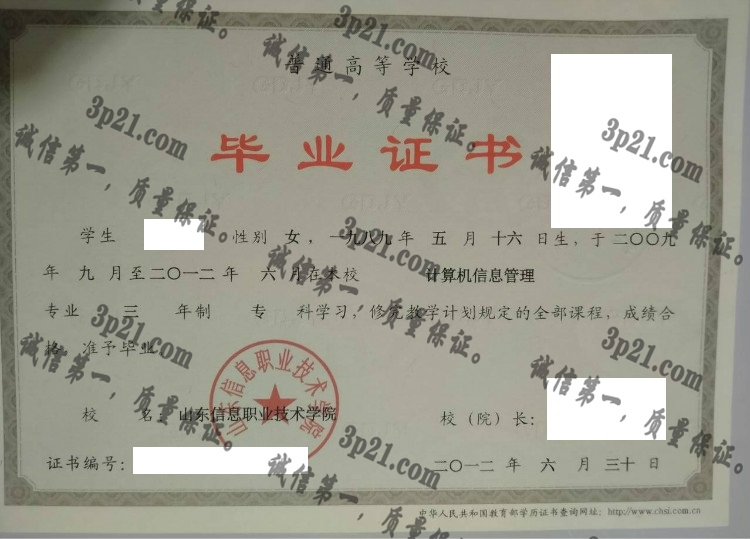 普通高等学校
毕业证书
学生 性别 女，一九八九年 五 月 十六 日生，于二〇〇九
年 九 月至二〇一二年 六 月在本校 计算机信息管理
专业 三 年制 专 科学习，修完教学计划规定的全部课程，成绩合
格，准予毕业。
山东信息职业技术学院
校 名：山东信息职业技术学院 校（院）长：
证书编号： 二〇一二 年 六 月 三十 日
中华人民共和国教育部学历证书查询网址：http://www.chsi.com.cn
3p21.com
诚信第一，质量保证。
3p21.com
诚信第一，质量保证。
3p21.com
诚信第一，质量保证。
3p21.com
诚信第一，质量保证。
3p21.com
诚信第一，质量保证。
3p21.com
诚信第一，质量保证。
3p21.com
诚信第一，质量保证。
质量保证。